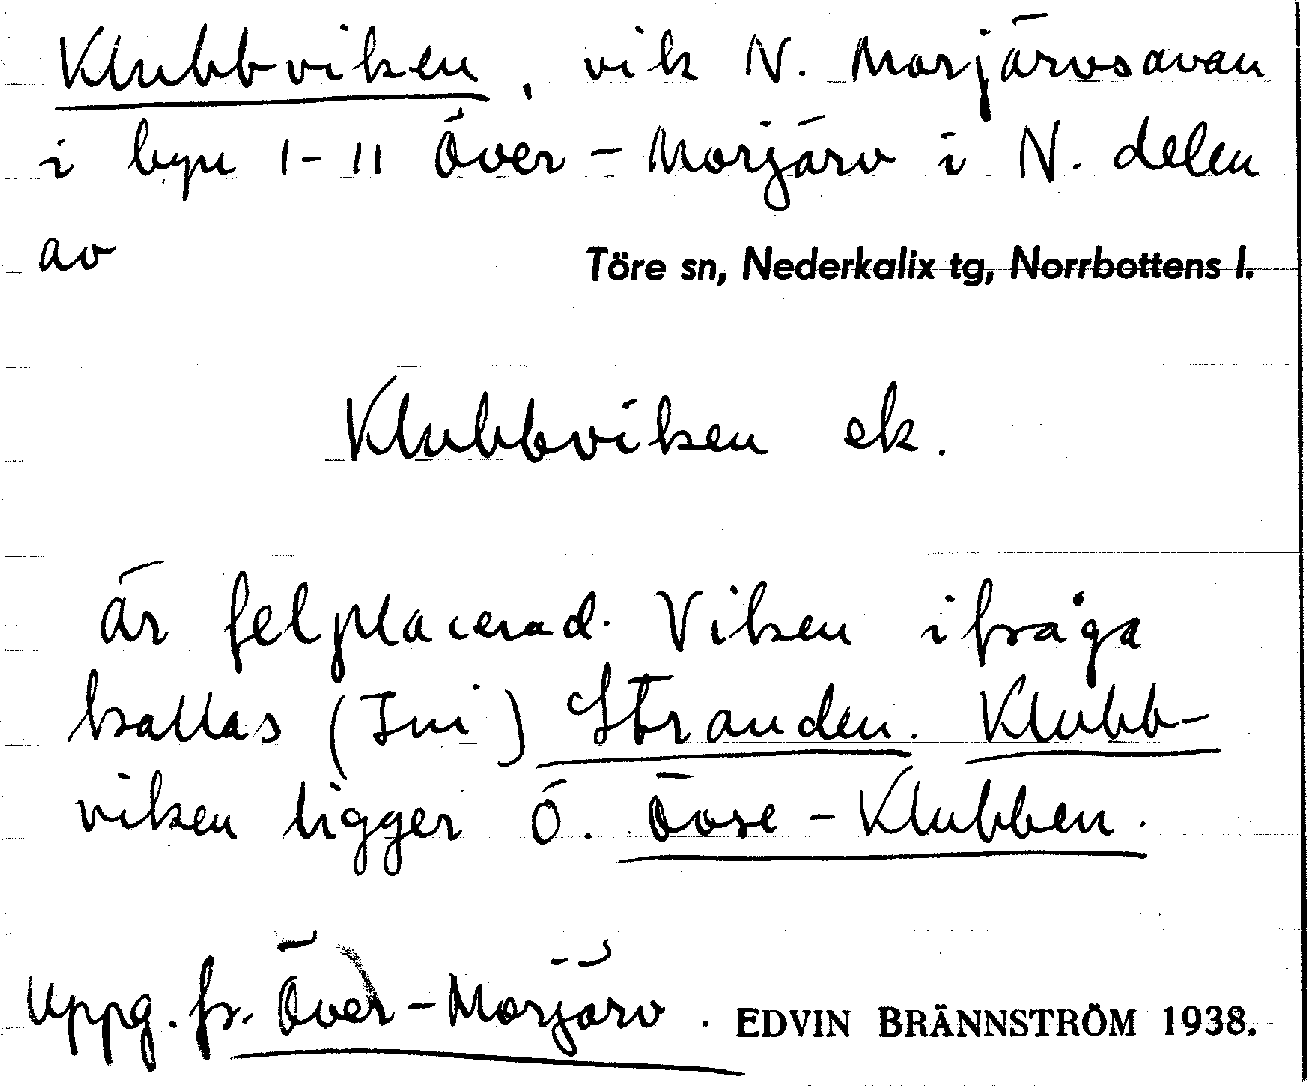 Klubbviken, vik N. Morjärvsavan
i byn 1-11 Över-Morjärv i N. delen
av Töre sn, Nederkalix tg, Norrbottens l.
Klubbviken ek.
är felplacerad. Viken ifråga
kallas (Ini) Stranden. Klubb-
viken ligger Ö. Övre-Klubben.
Uppg. fr. Över-Morjärv. EDVIN BRÄNNSTRÖM 1938.